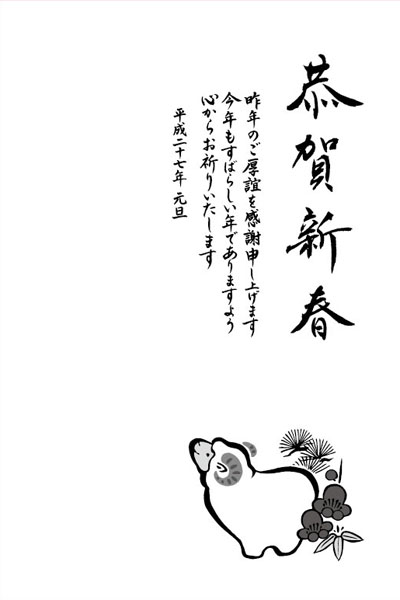 恭賀新春
昨年のご厚誼を感謝申し上げます
今年もすばらしい年でありますよう
心からお祈りいたします
平成二十七年 元旦